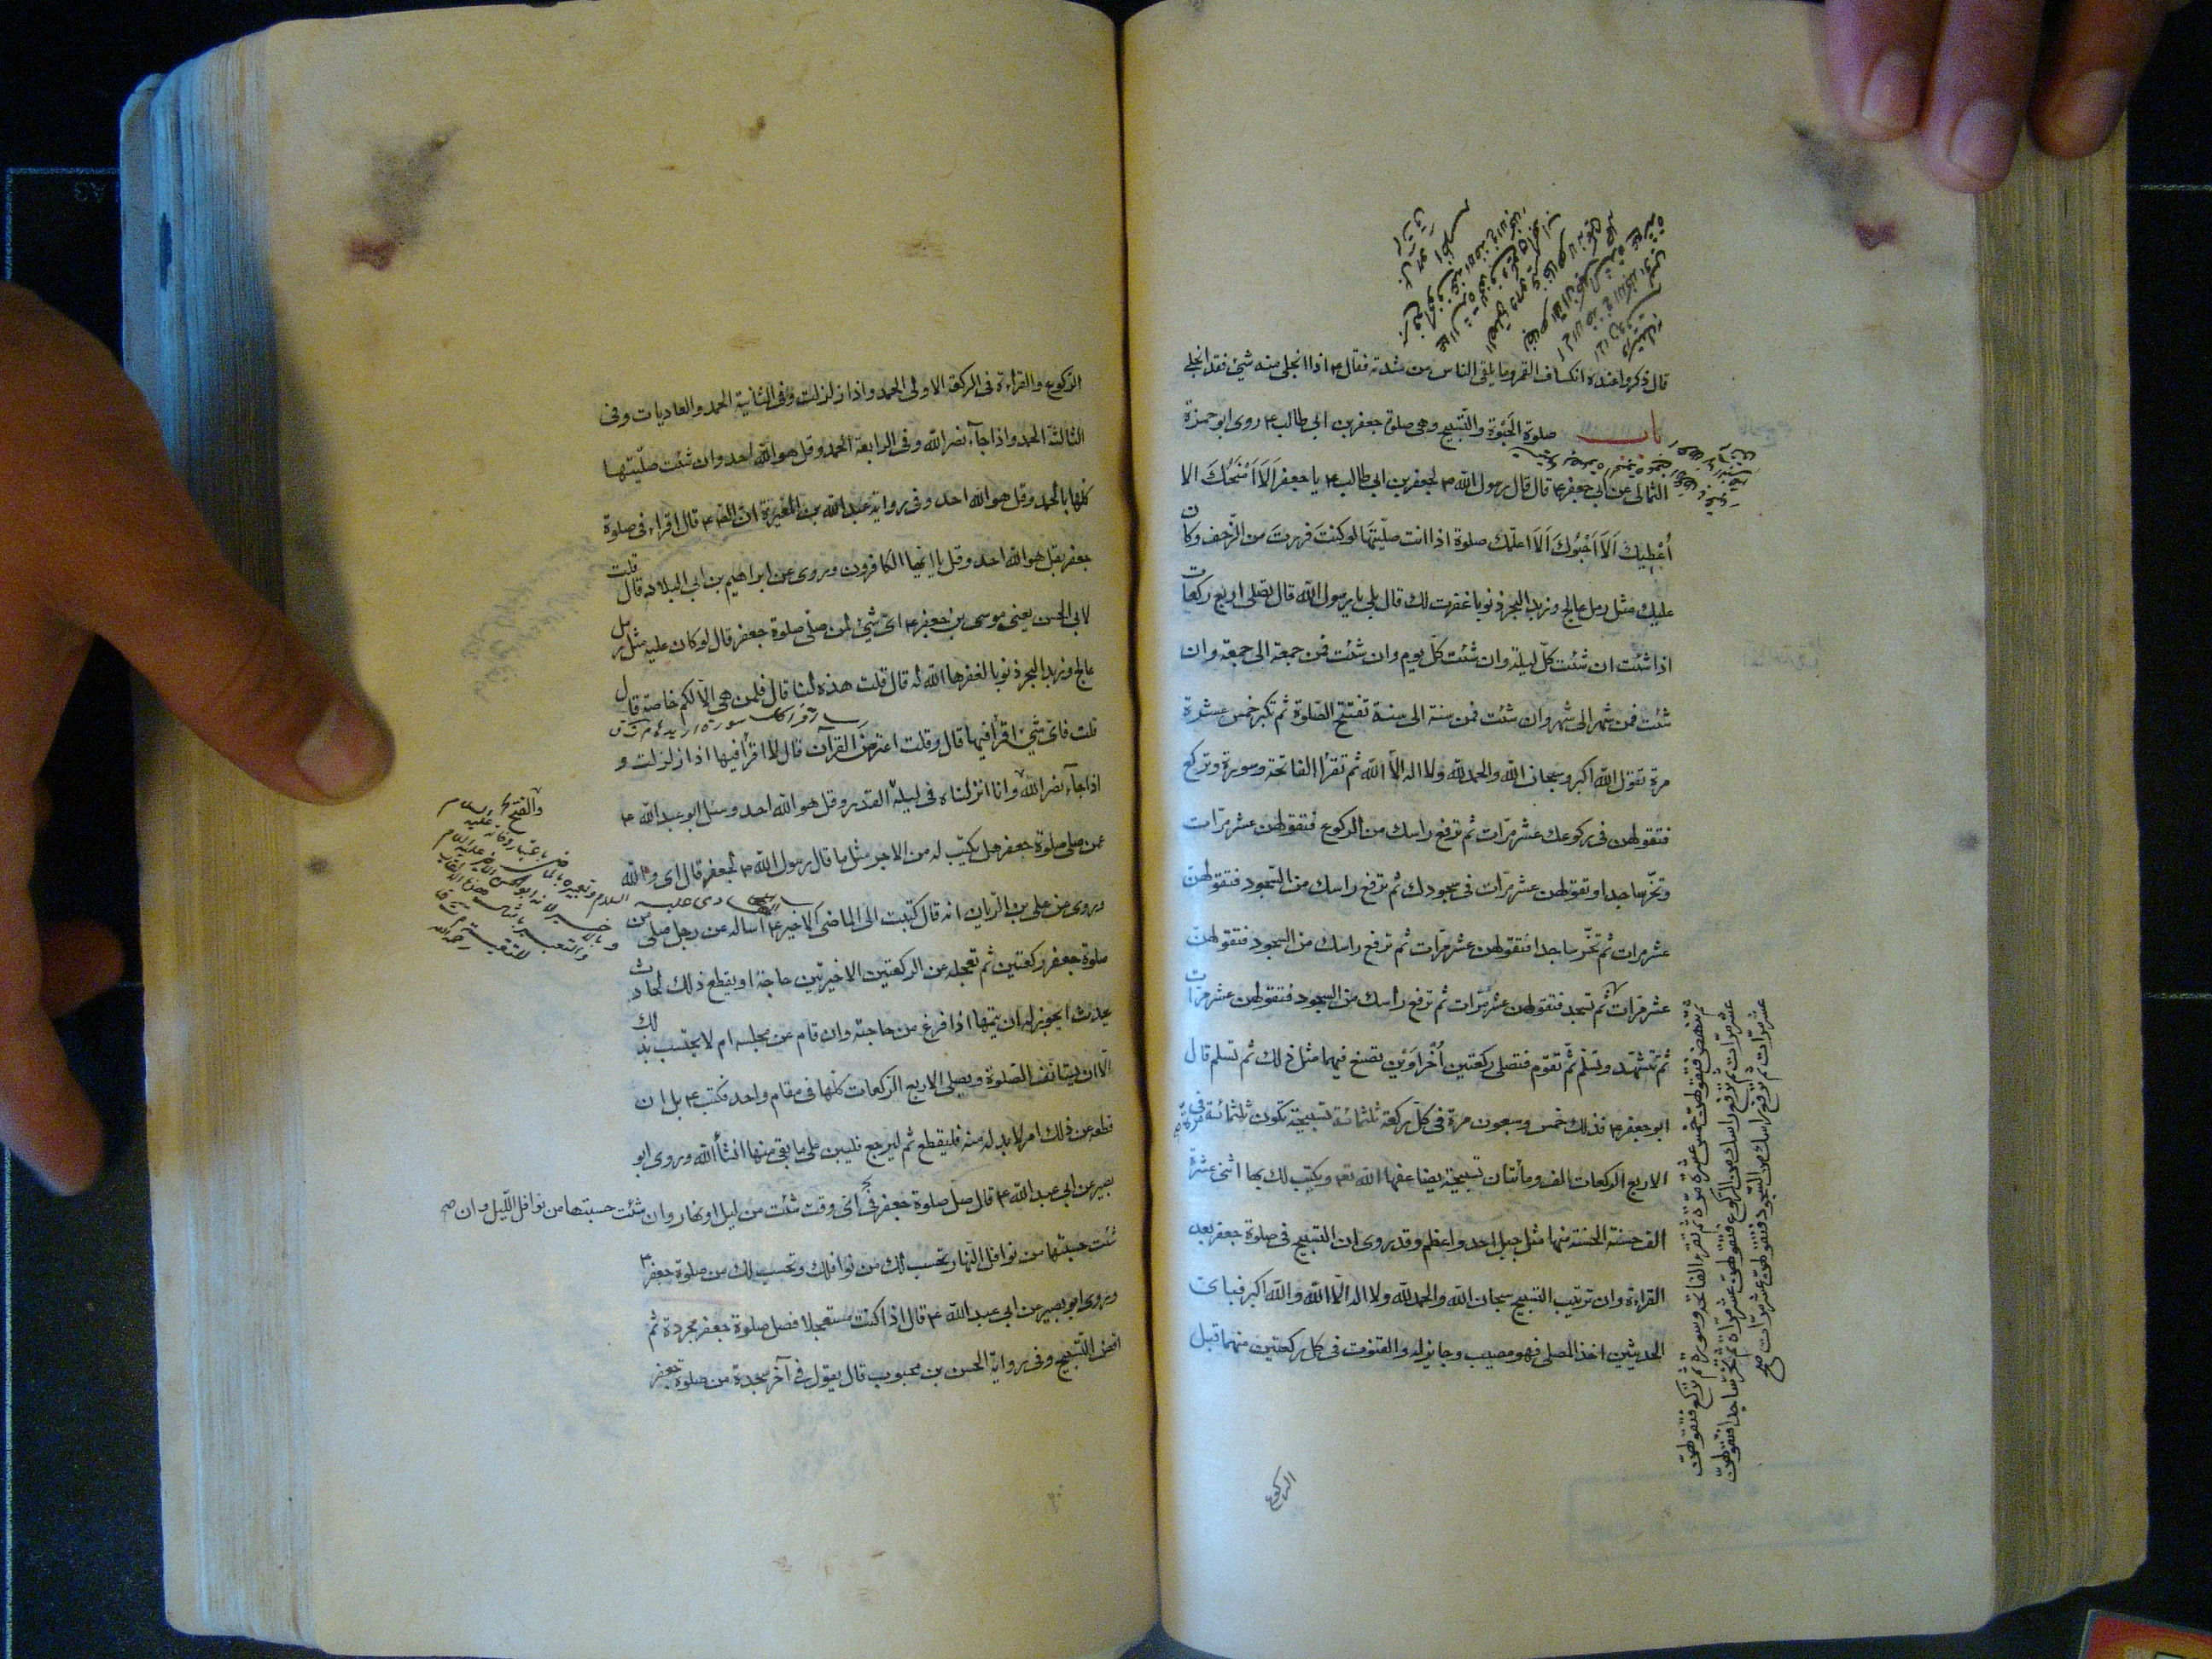 قال ذكروا عنده انكساف القمر وما يلقى الناس من شدته فقال ع اذا انجلى منه شئ فقد انجلى
باب صلوة الحبوة والتسبيح وهى صلوة جعفر بن ابى طالب ع روى ابو حمزة
الثمالى عن ابى جعفر ع قال قال رسول الله ص لجعفر بن ابى طالب ع يا جعفر اَلَا اَمْنَحُكَ الا
اُعْطِيك اَلَا اَحْبُوكَ اَلَا اعلّمك صلوة اذا انت صلّيتها لو كنتَ فررتَ من الزّحف وكان
عليك مثل رمل عالج وزبد البحر ذنوبا غفرت لك قال بلى يا رسول الله قال تصلى اربع ركعات
اذا شئت ان شئت كلّ ليلة وان شئت كلّ يوم وان شئت فمن جمعة الى جمعة وان
شئت فمن شهر الى شهر وان شئت فمن سنة الى سنة تفتتح الصّلوة ثم تكبر خمس عشرة
مرة تقول الله اكبر وسبحان الله والحمد لله ولا اله الّا الله ثم تقرأ الفاتحة وسورة وتركع
فتقولهن فى ركوعك عشر مرّات ثم ترفع راسك من الركوع فتقولهن عشر مرّات
وتخرّ ساجدا وتقولهن عشر مرّات فى سجودك ثم ترفع راسك من السّجود فتقولهنّ
عشر مرات ثم تخرّ ساجدا فتقولهن عشر مرّات ثم ترفع راسك من السجود فتقولهنّ
عشر مرّات ثم تسجد فتقولهن عشر مرّات ثم ترفع راسك من السجود فتقولهن عشر مرّات
ثم تتشهّد وتسلّم ثمّ تقوم فتصلى ركعتين اُخْراوَيْن تصنع فيهما مثل ذلك ثم تسلم قال
ابو جعفر ع فذلك خمس وسبعون مرة فى كلّ ركعة ثلثمائة تسبيحة تكون ثلثمائة مرّة فى
الاربع الركعات الف ومائتان تسبيحة يضاعفها الله تع ويكتب لك بها اثنى عشرة
الف حسنة الحسنة منها مثل جبل احد واعظم وقد روى ان التسبيح فى صلوة جعفر بعد
القراءة وان ترتيب التسبيح سبحان الله والحمد لله ولا اله الّا الله والله اكبر فباىّ
الحديثين اخذ المصلى فهو مصيب وجايز له والقنوت فى كل ركعتين منهما قبل
ثم تنهض فتقولهن خمس عشرة مرّة ثم تقرء الفاتحة وسورة ثم تركع فتقولهنّ
عشر مرّات ثم ترفع راسك من الركوع فتقولهنّ عشر مرّات ثم تخرّ ساجدا فتقولهنّ
عشر مرّات ثم ترفع راسك من السّجود فتقولهنّ عشر مرّات صح
الركوع
الركوع والقراءة فى الركعة الاولى الحمد واذا زلزلت وفى الثانية الحمد والعاديات وفى
الثالثة الحمد واذا جاء نصر الله وفى الرابعة الحمد وقل هو الله احد وان شئت صلّيتها
كلها بالحمد وقل هو الله احد وفى رواية عبد الله بن المغيرة انّ الصّ ع قال اقراء فى صلوة
جعفر بقل هو الله احد وقل يا ايّها الكافرون وروى عن ابراهيم بن ابى البلاد قال قلت
لابى الحسن يعنى موسى بن جعفر ع اىّ شئ لمن صلّى صلوة جعفر قال لو كان عليه مثل رمل
عالج وزبد البحر ذنوبا لغفرها الله له قال قلت هذه لنا قال فلمن هى الّا لكم خاصة قال
قلت فاىّ شئ اقرأ فيها قال وقلت اعترض القرآن قال لا اقرأ فيها اذا زلزلت و
اذا جاء نصر الله وانا انزلناه فى ليلة القدر وقل هو الله احد وسئل ابو عبد الله ع
والفتح
عمن صلى صلوة جعفر هل يكتب له من الاجر مثل ما قال رسول الله ص لجعفر قال اى والله
وروى عن على بن الريّان انه قال كتبت الى الماضى الاخير ع اساله عن رجل صلى من
صلوة جعفر ركعتين ثم تعجله عن الركعتين الاخيرتين حاجة او يقطع ذلك لحادث
يحدث ايجوز له ان يتمّها اذا فرغ من حاجته وان قام عن مجلسه ام لا يحتسب بذلك
الّا ان يستانف الصّلوة ويصلى الاربع الركعات كلّها فى مقام واحد فكتب ع بل ان
قطعه عن ذلك امر لا بدّ له منه فليقطع ثم ليرجع فليبن على ما بقى منها انشاء الله وروى ابو
بصير عن ابى عبد الله ع قال صلّ صلوة جعفر فى اىّ وقت شئت من ليل او نهار وان شئت حسبتها من نوافل اللّيل وان صح
شئت حسبتها من نوافل النّهار تحسب لك من نوافلك وتحسب لك من صلوة جعفر ع
وروى ابو بصير عن ابى عبد الله ع قال اذا كنت مستعجلا فصل صلوة جعفر مجردة ثم
اقض التّسبيح وفى رواية الحسن بن محبوب قال يقول فى آخر سجدة من صلوة جعفر